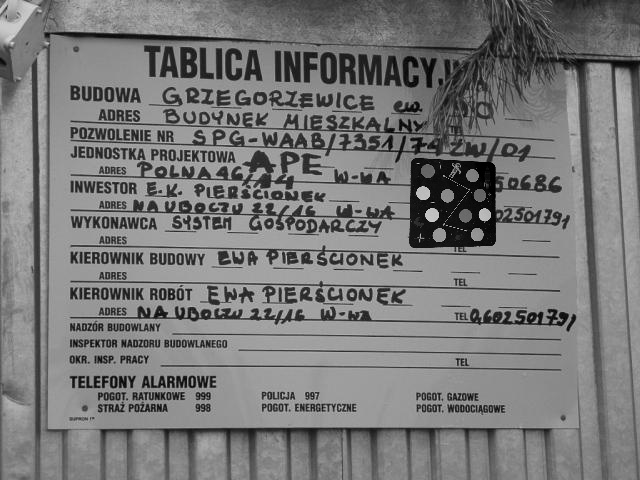 TABLICA INFORMACYJN
BUDOWA GRZEGORZEWICE ew.
ADRES BUDYNEK MIESZKALNY
POZWOLENIE NR SPG-WAAB/7351/74 ZW/01
JEDNOSTKA PROJEKTOWA APE
ADRES POLNA 46/44 W-WA 50686
INWESTOR E.K. PIERŚCIONEK
ADRES NA UBOCZU 22/16 W-WA 02501791
WYKONAWCA SYSTEM GOSPODARCZY
ADRES TEL
KIEROWNIK BUDOWY EWA PIERŚCIONEK
ADRES TEL
KIEROWNIK ROBÓT EWA PIERŚCIONEK
ADRES NA UBOCZU 22/16 W-WA TEL 0,602501791
NADZÓR BUDOWLANY
INSPEKTOR NADZORU BUDOWLANEGO
OKR. INSP. PRACY TEL
TELEFONY ALARMOWE
POGOT. RATUNKOWE 999 POLICJA 997 POGOT. GAZOWE
STRAŻ POŻARNA 998 POGOT. ENERGETYCZNE POGOT. WODOCIĄGOWE